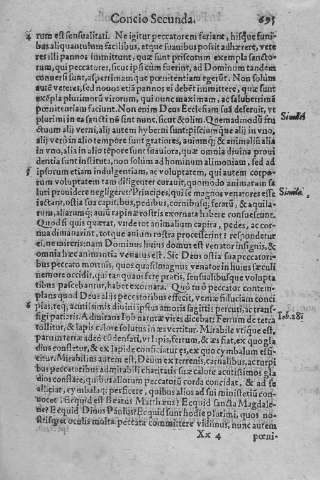 Concio Secunda. 695
rum est sensualitati. Ne igitur peccatorem feriant, hisque funi-
bus aliquantulum facilibus, atque suavibus possit adhærere, vete
res illi pannos immittunt, quæ sunt priscorum exempla sancto-
rum, qui peccatores, sicut ipsi cùm fuerint, ad Dominum tandem
conversi sunt, asperrimamque pœnitentiam egerũt. Non solùm
autē veteres, sed novos etiā pannos ei debēt immittere, quæ sunt
exēpla plurimorū virorum, qui nunc maximam, ac saluberrimā
pœnitentiam faciunt. Non enim Deus Ecclesiam suā deseruit, ve
plurimi in ea sancti nō sint nunc, sicut & olim. Quemadmodū fru
ctuum alij verni, alij autem hyberni sunt: pisciumque alij in vno,
alij verò in alio tempore sunt gratiores, auiumq; & animaliũ alia
in vno, alia in alio tēpore sunt suauiora, quæ omnia diuina proui
dentia sunt instituta, non solùm ad hominum alimoniam, sed ad
ipsorum etiam indulgentiam, ac voluptatem, qui autem corpo-
rum voluptatem tam diligenter curauit, quomodo animarum sa
luti prouidere negligeret? Principes, qui se magnos venatores esse
iactant, ostia suis capitibus, pedibus, cornibusq; ferarū, & aquila-
rum, aliarumq; auiū rapinæ rostris exornata habere consuescunt.
Quod si quis quærat, vnde tot animalium capita, pedes, ac cor-
nua dimanarint, totque auium rostra processerint? respondetur
ei, ne mireris: nam Dominus huius domus est venator insignis, &
omnia hæc animantia venatus est. Sic Deus ostia suæ peccatori-
bus peccato mortuis, quos quasi magnus venator in huius sæculi
nemore occidit, qui tanquam feræ pratis, sensualibusque volupta
tibus pascebantur, habet exornata. Quo modo peccator contem-
plans quod Deus alijs peccatoribus effecit, veniæ fiduciam conci
piat, teq; acutissimis diuini ipsius amoris sagittis percuti, ac transfi
gi patiatis. Admirans Iob naturæ vires dicebat: Ferrum de terra
tollitur, & lapis calore solutus in æs vertitur. Mirabile vtique est,
parum terræ adeò cōdensati, vt lapis, ferrum, & æs fiat, ex quo gla
dius constetur, & ex lapide conficitur es, ex quo cymbalum effi-
citur. Mirabilius autem est, Deum ex terrenis, carnalibus, ac turpi
bus peccatoribus admirabili charitatis suæ calore acutissimos gla
dios constare, quibus aliorum peccatorū corda concidat, & ad se
alliciat, cymbalaq; perficere, quibus alios ad sui ministeriū con-
uocet. Ecquid est Beatus Matthæus? Ecquid sancta Magdale-
na? Ecquid Diuus Paulus? Ecquid sunt hodie plurimi, quos no-
strisque oculis multa peccata committere vidimus, nunc autem
Xx 4 pœni-
Simile.
Simile.
Iob. 28.